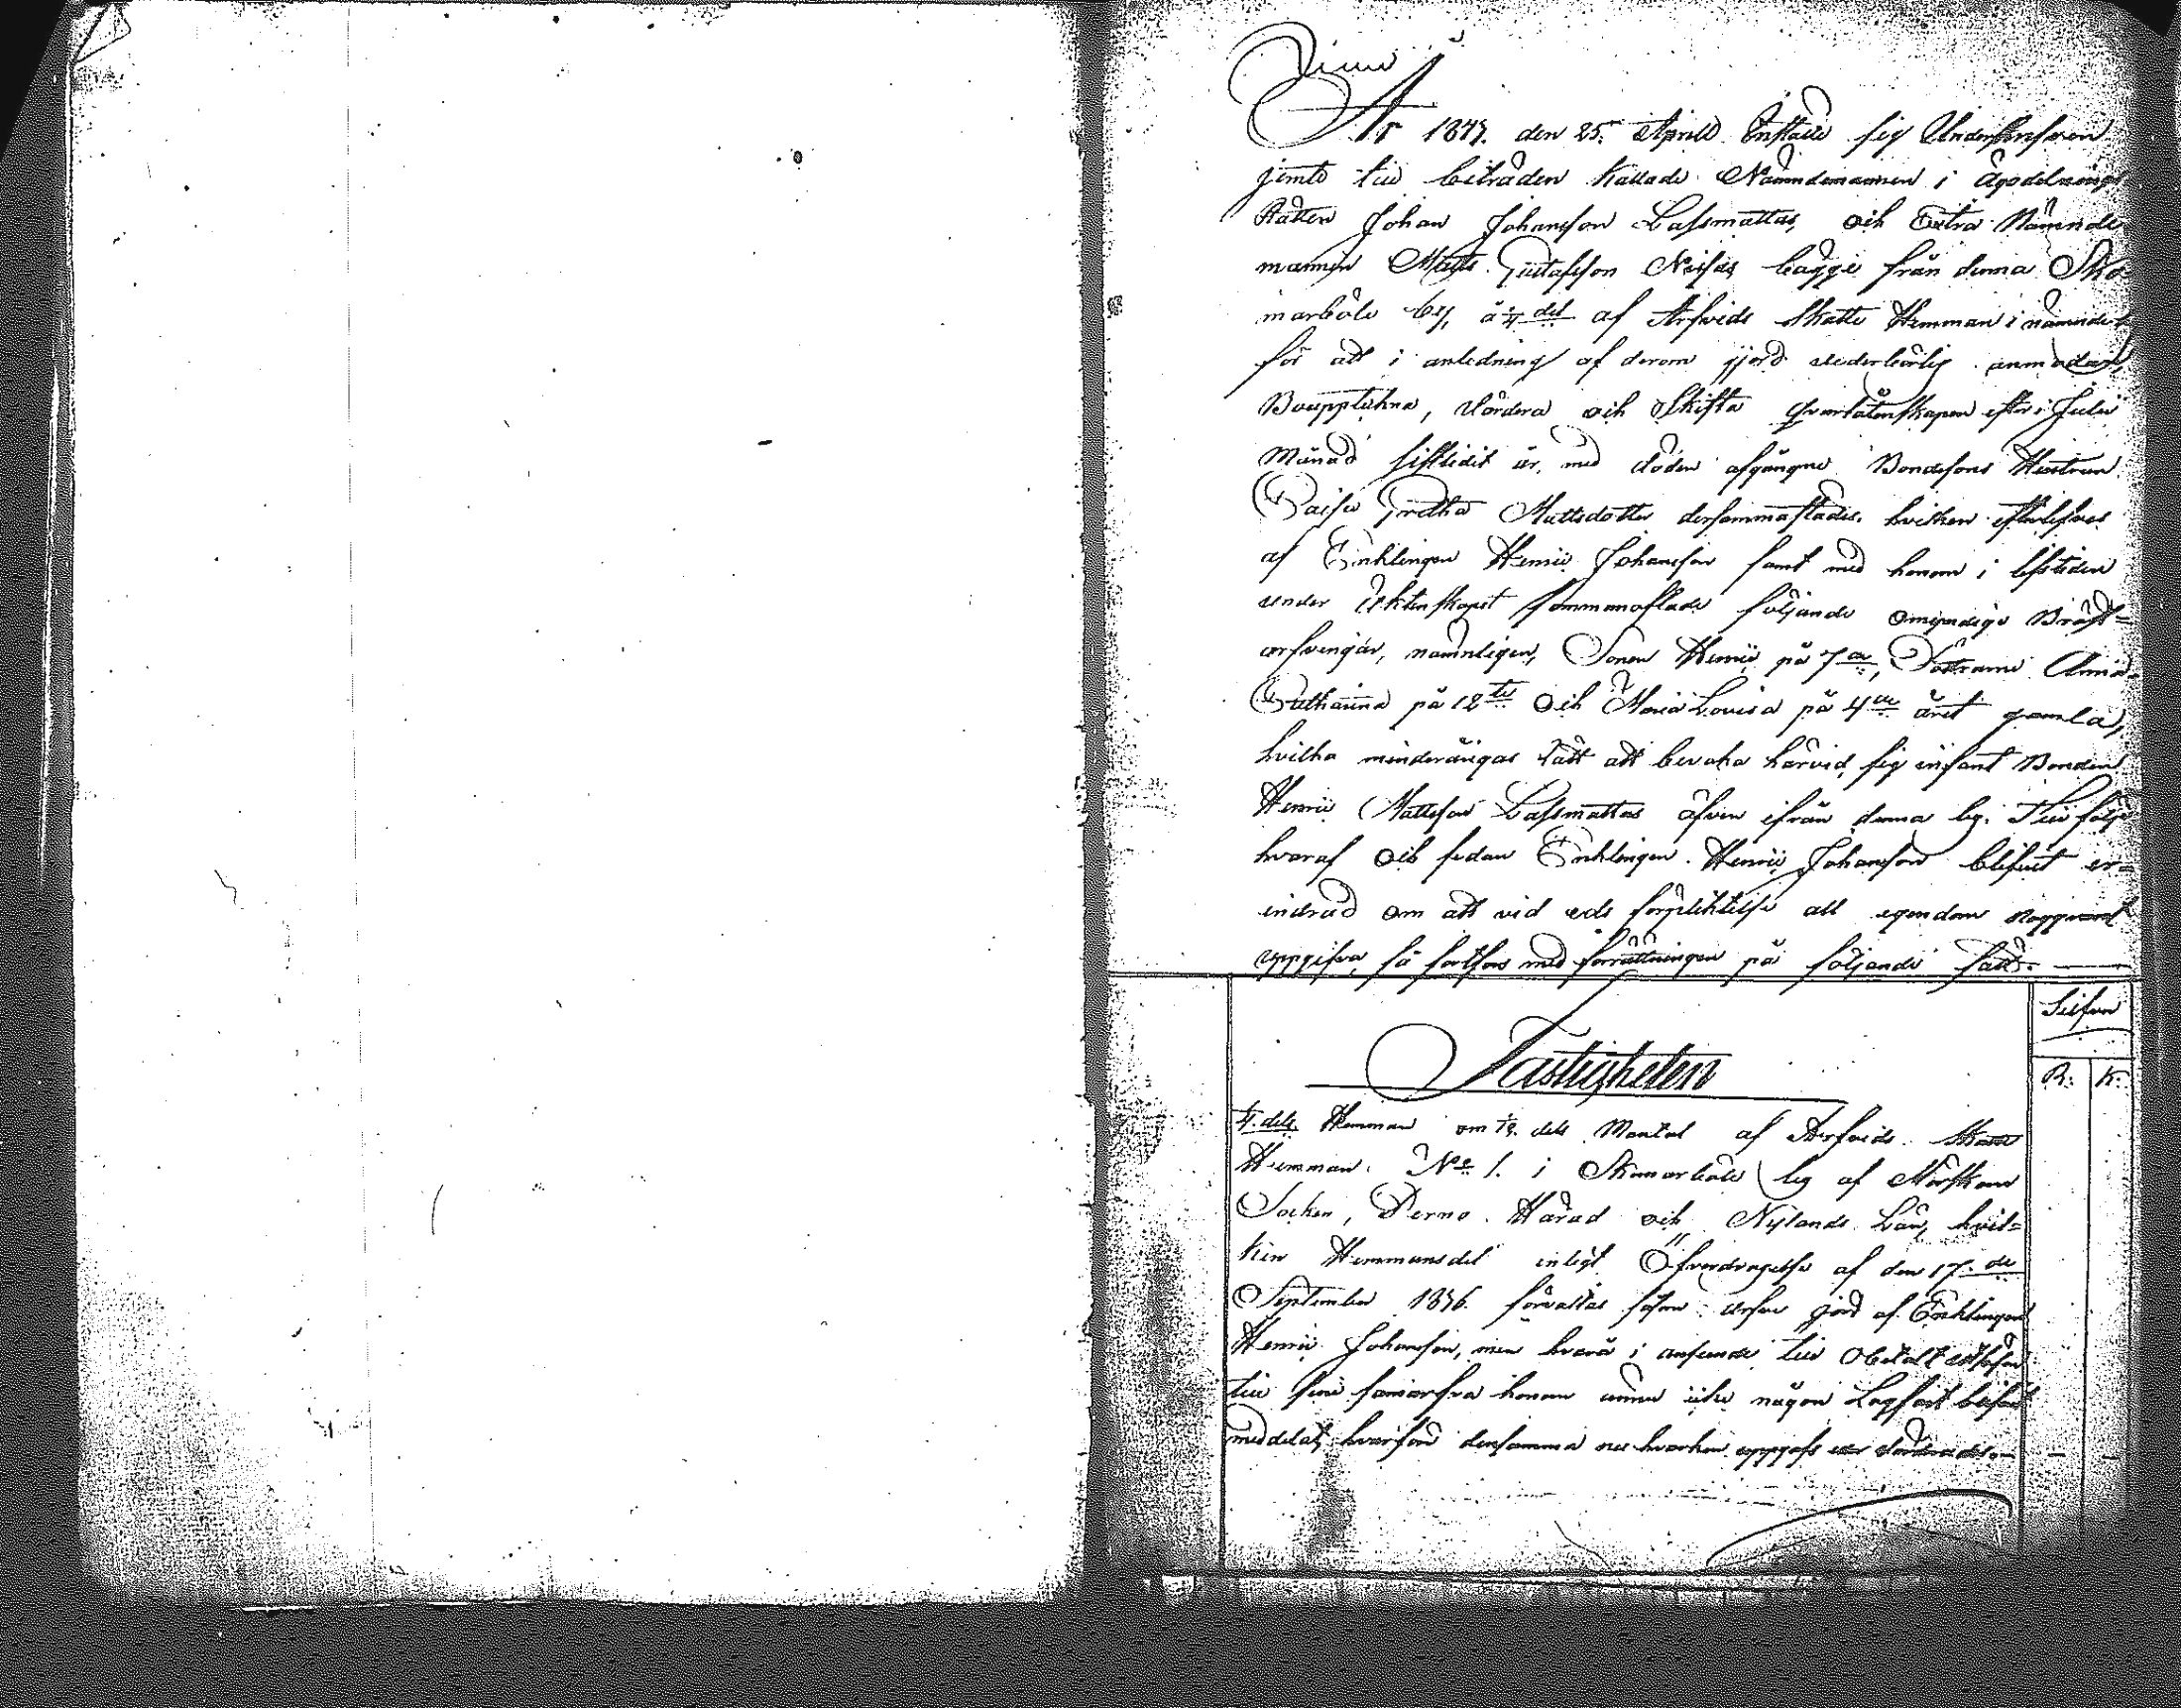 År 1849. den 25. April Instälde sig Underskrifven
jemte till biträden kallade Nämndemannen i Ägodelnings
Rätten Johan Johansson Lassmattas, och Extra Nämnde
mannen Matts Gustafsson Nissas bägge från denna Skom
marböle by, å 1/4 del af Arfvids Skatte Hemman i nämnde
för att i anledning af derom gjord vederbörlig anmodan,
Boupptekna, värdera och Skifta qvarlåtenskapen efter i Julii
Månad sistledit år, med döden afgångne Bondesons Hustrun
Caisa Gretha Mattsdotter dersammastädes. hvilken efterlefves
af Enklingen Henric Johansson samt med honom i lifstiden
under äktenskapet sammanaflade följande omyndige Bröst-
arfvingar, namnligen, Sonen Henric på 7de, Döttrarne Anna
Catharina på 12te och Maria Lovisa på 4de året gamla,
hvilka minderårigas rätt att bevaka härvid sig infant Bonden
Henric Mattsson Lassmattas äfven ifrån denna by. Till följe
hvaraf och sedan Enklingen Henric Johansson blifvit er-
indrad om att vid eds förplicktelse all egendom noggrant
uppgifva, så fortfors med förrättningen på följande sätt. —
Silfver
Fastigheten
R: K:
1/4 dels Hemman om dels Mantal af Arfvids Skatte
Hemman No 1. i Skomarböle by af Mörskom
Socken, Perno Härad och Nylands Län, hvil-
ken Hemmansdel enligt Öfverdragelse af den 17de
September 1846 förvaltas såsom gård af Enklingen
Henric Johansson, men hvarå i anseende till
till sine honom ännu icke någon Lagfart blifvit
meddelat, hvarföre densamma nu hvarken uppgafs eller värderades. — — —